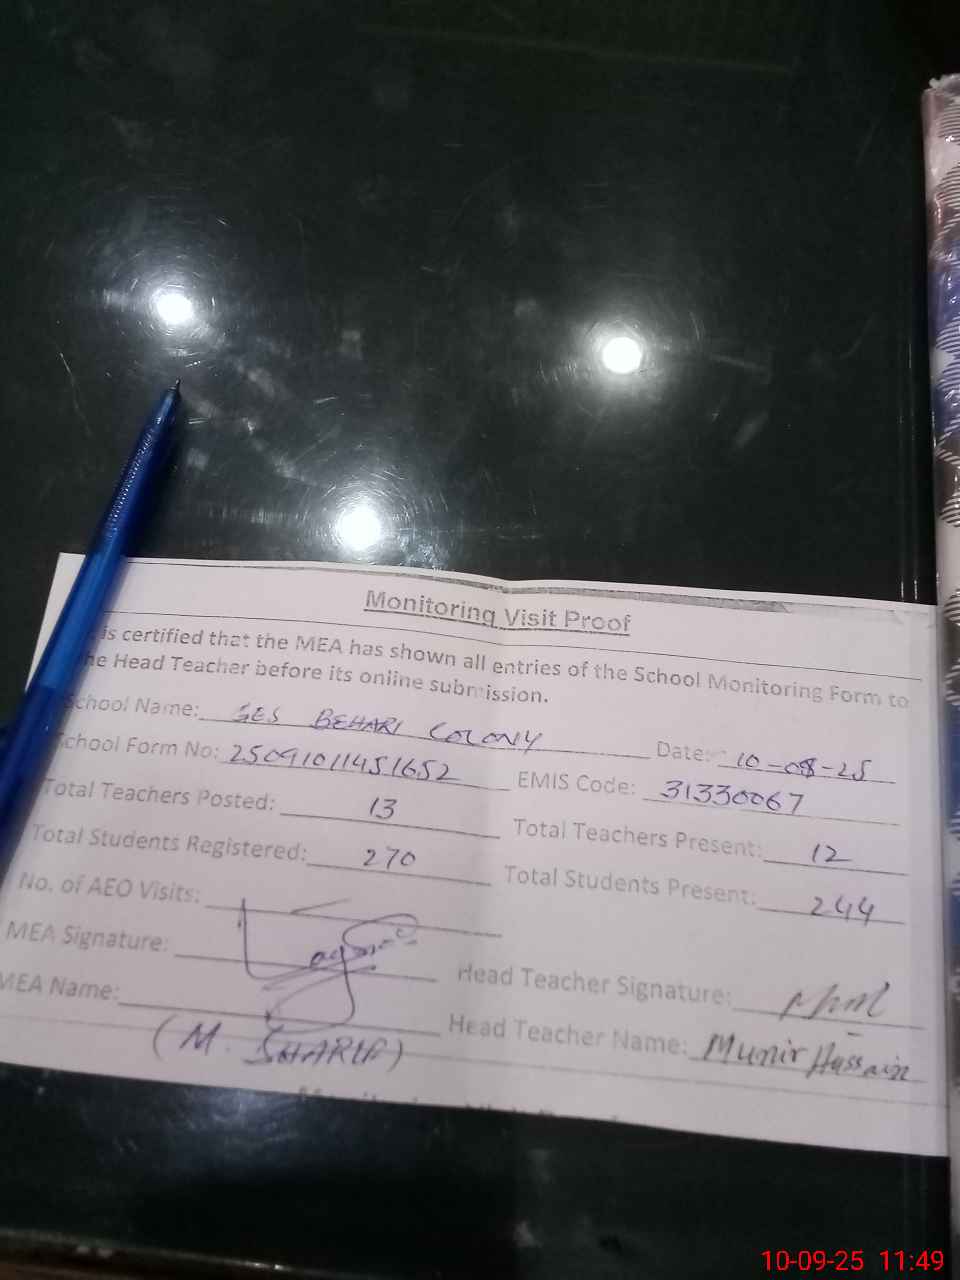 Monitoring Visit Proof
is certified that the MEA has shown all entries of the School Monitoring Form to
he Head Teacher before its online submission.
School Name: GES BEHARI COLONY Date: 10-08-25
School Form No: 25091011451652 EMIS Code: 31330067
Total Teachers Posted: 13 Total Teachers Present: 12
Total Students Registered: 270 Total Students Present: 244
No. of AEO Visits:
MEA Signature: Head Teacher Signature:
MEA Name: Head Teacher Name: Munir Hussain
(M. SHARIF)
10-09-25 11:49